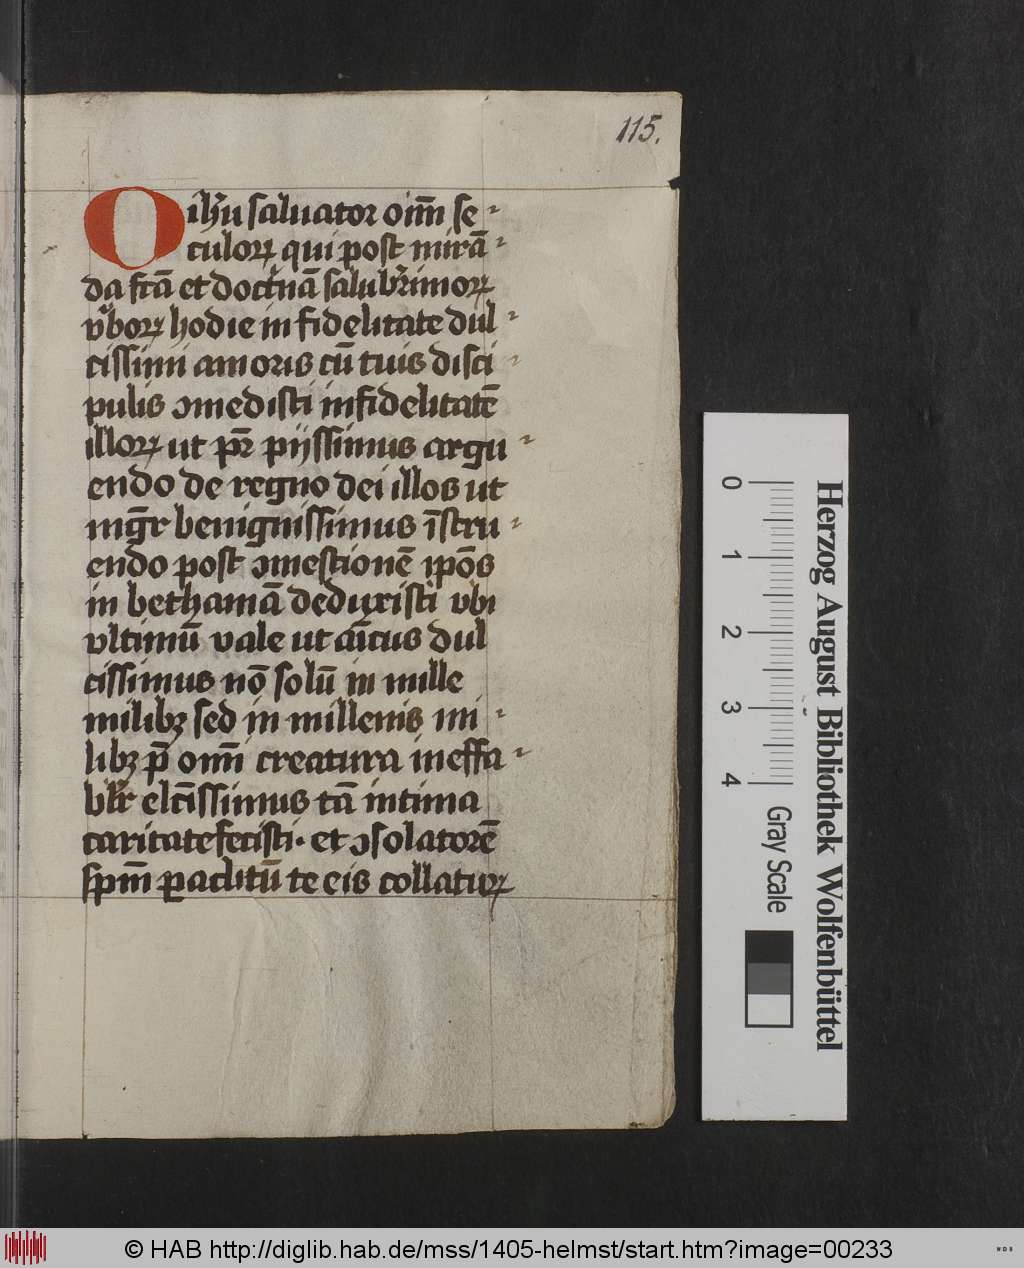 115.
O ihū saluator oīm se-
culoꝝ qui post mirā-
da fcā et doctͥnā salubͥrimoꝝ
vͤboꝝ hodie in fidelitate dul-
cissimi amoris cū tuis disci-
pulis ꝯmedisti infidelitatē
illoꝝ ut pr̄ pijssimus argu-
endo de regno dei illos ut
mgr̄ benignissimus īstru-
endo post ꝯmestionē ipōs
in bethaniā deduxisti vbi
vltimū vale ut aīcus dul
cissimus nō solū in mille
milibꝫ sed in millenis mi-
libꝫ p̄ omī creatura ineffa-
blr̄ elc̄issimus tā intima
caritate fecisti· et ꝯsolatorē
spm̄ ꝑaclitū te eis collatuꝝ
0 1 2 3 4
Gray Scale
Herzog August Bibliothek Wolfenbüttel
© HAB http://diglib.hab.de/mss/1405-helmst/start.htm?image=00233